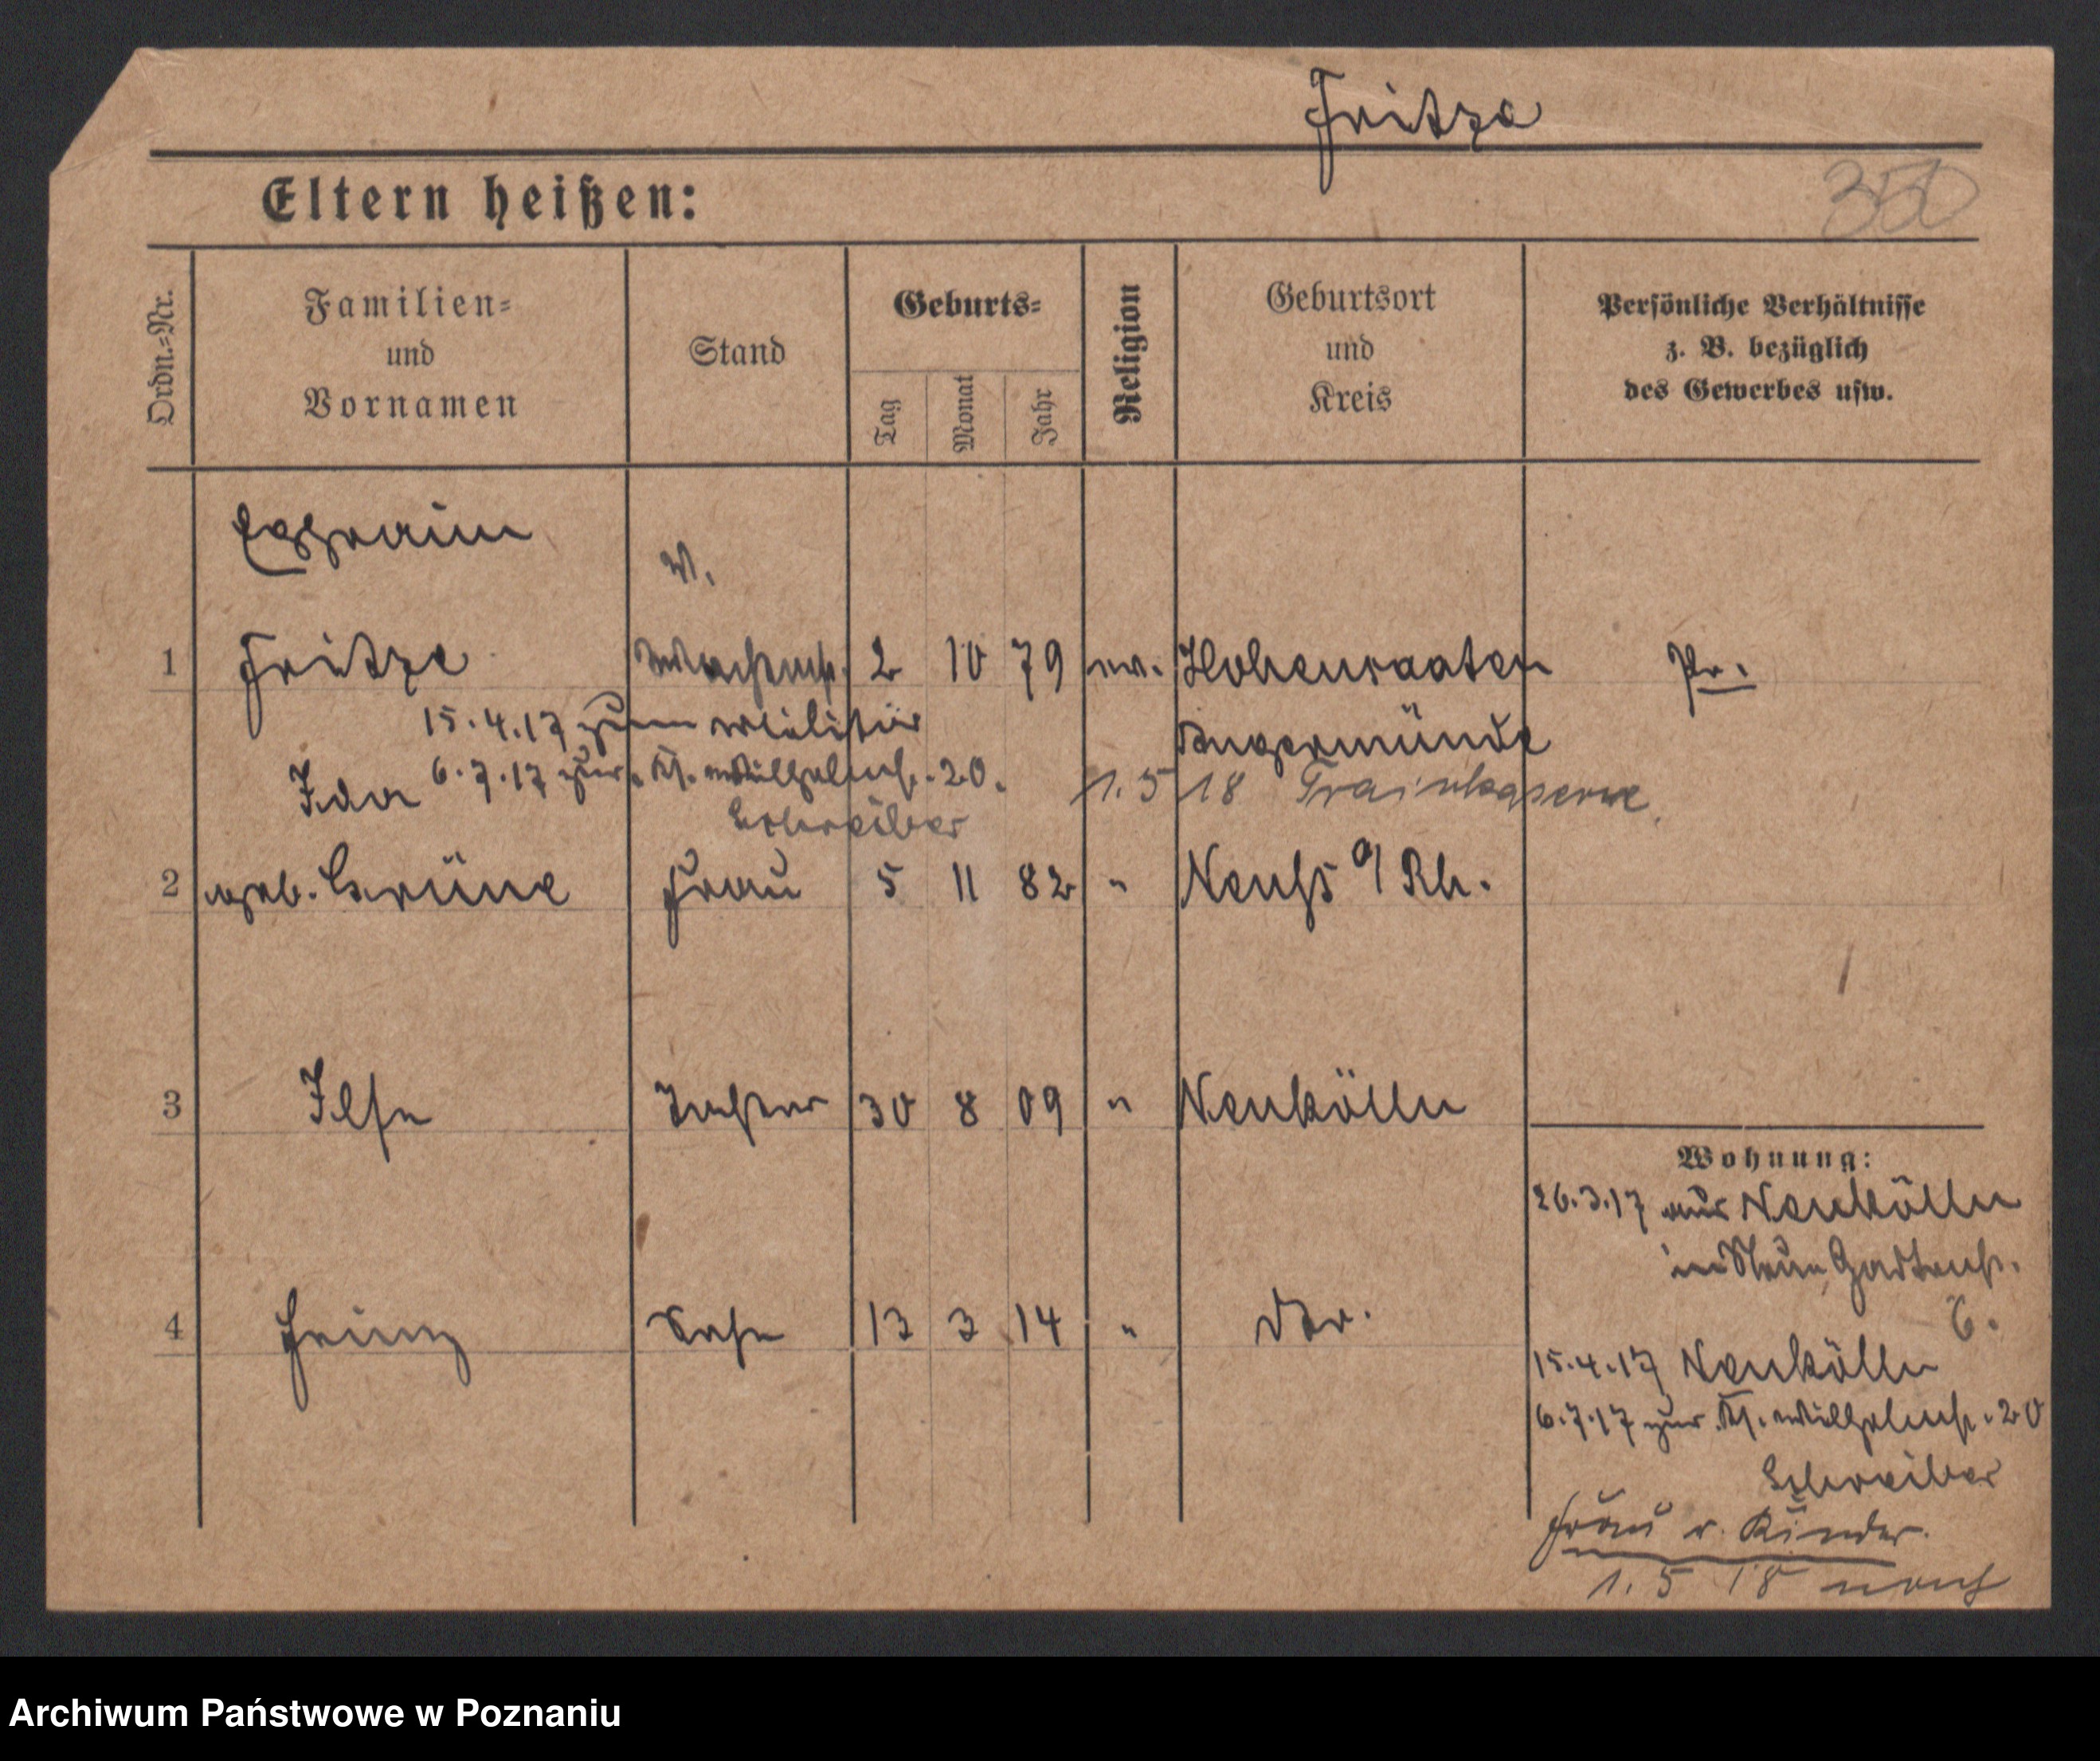 Fritze
Eltern heißen:
350
Ordn.=Nr.
Familien=
und
Vornamen
Stand
Geburts=
Tag
Monat
Jahr
Religion
Geburtsort
und
Kreis
Persönliche Verhältnisse
z. B. bezüglich
des Gewerbes usw.
Ephraim
1 Fritze 2 10 79 ev. Hohensaaten Pr.
15.4.17 zum Militär Angermünde
Ida 6.7.17 zur. 20. 1.5 18 Trainkaserne
Schreiber
2 geb. Grüne Frau 5 11 82 " Neuß a/Rh.
3 Ilse Tochter 30 8 09 " Neukölln
Wohnung:
26.3.17 aus Neukölln
6.
4 Heinz Sohn 13 3 14 "
15.4.17 Neukölln
6.7.17 zur. 20
Schreiber
Frau u. Kinder.
1.5 18 noch
Archiwum Państwowe w Poznaniu